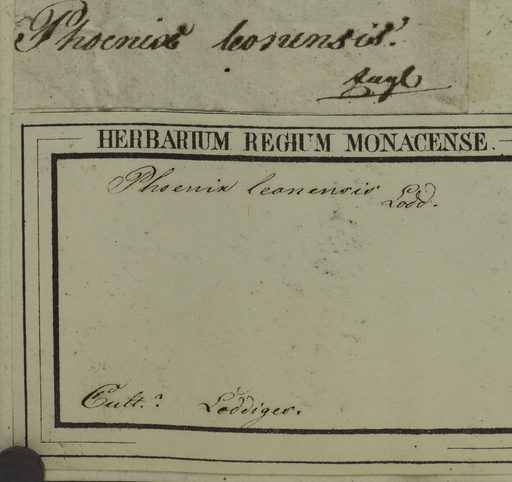 Phoenix leonensis.
Angl
HERBARIUM REGIUM MONACENSE.
Phoenix leonensis Lodd.
Cult.: Loddiges.